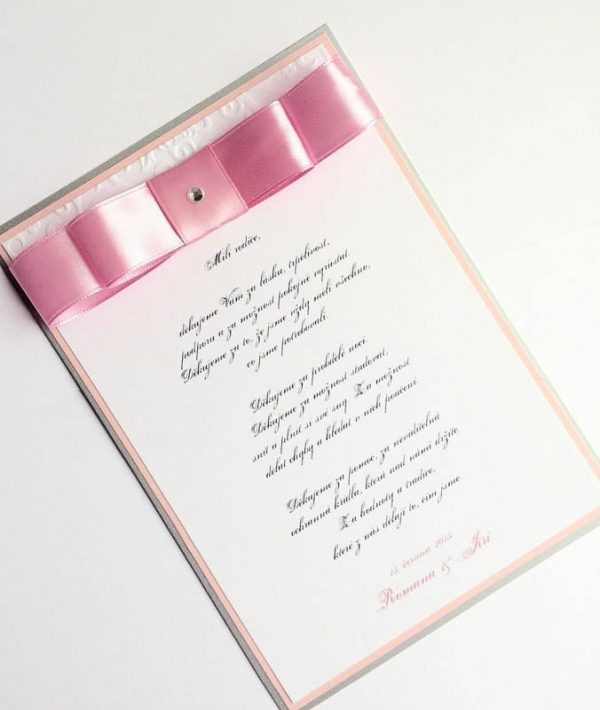 Milí rodiče,
děkujeme Vám za lásku, trpělivost,
podporu a za možnost pokojně vyrůstat.
Děkujeme za to, že jsme vždy měli všechno,
co jsme potřebovali.
Děkujeme za probdělé noci.
Děkujeme za možnost studovat,
snít a plnit si své sny. Za možnost
dělat chyby a hledat v nich poučení.
Děkujeme za pomoc, za neviditelná
ochranná křídla, která nad námi držíte.
Za hodnoty a tradice,
které z nás dělají to, čím jsme.
13. června 2015
Romana & Jiří